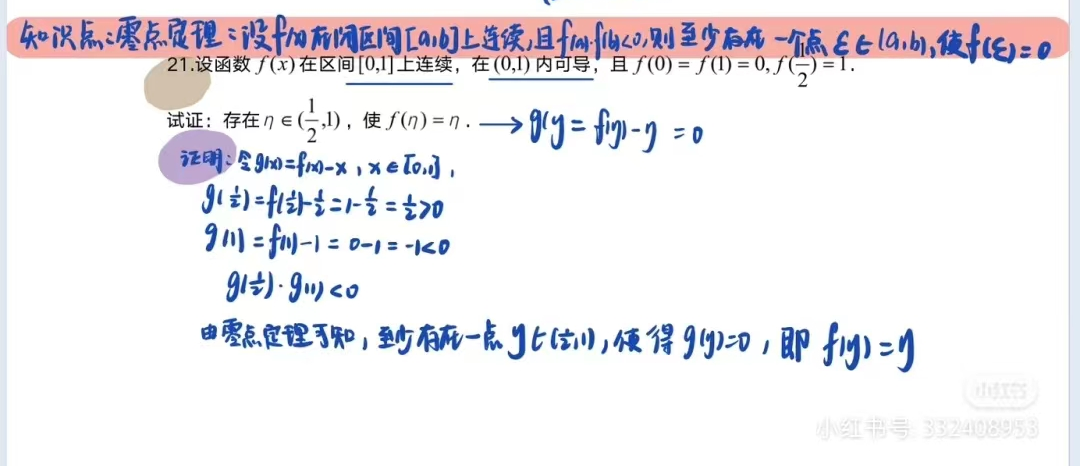 知识点:零点定理:设f(x)在闭区间[a,b]上连续,且f(a)·f(b)<0,则至少存在一个点ξ∈(a,b),使f(ξ)=0
21.设函数 f(x) 在区间[0,1]上连续，在(0,1)内可导，且 f(0)=f(1)=0, f(1/2)=1.
试证：存在η∈(1/2,1)，使 f(η)=η. → g(η=f(η)-η =0
证明:令g(x)=f(x)-x,x∈[0,1],
g(1/2)=f(1/2)-1/2=1-1/2=1/2>0
g(1)=f(1)-1=0-1=-1<0
g(1/2)·g(1)<0
由零点定理可知,至少存在一点η∈(1/2,1),使得g(η)=0,即f(η)=η
小红书
小红书号: 332408953